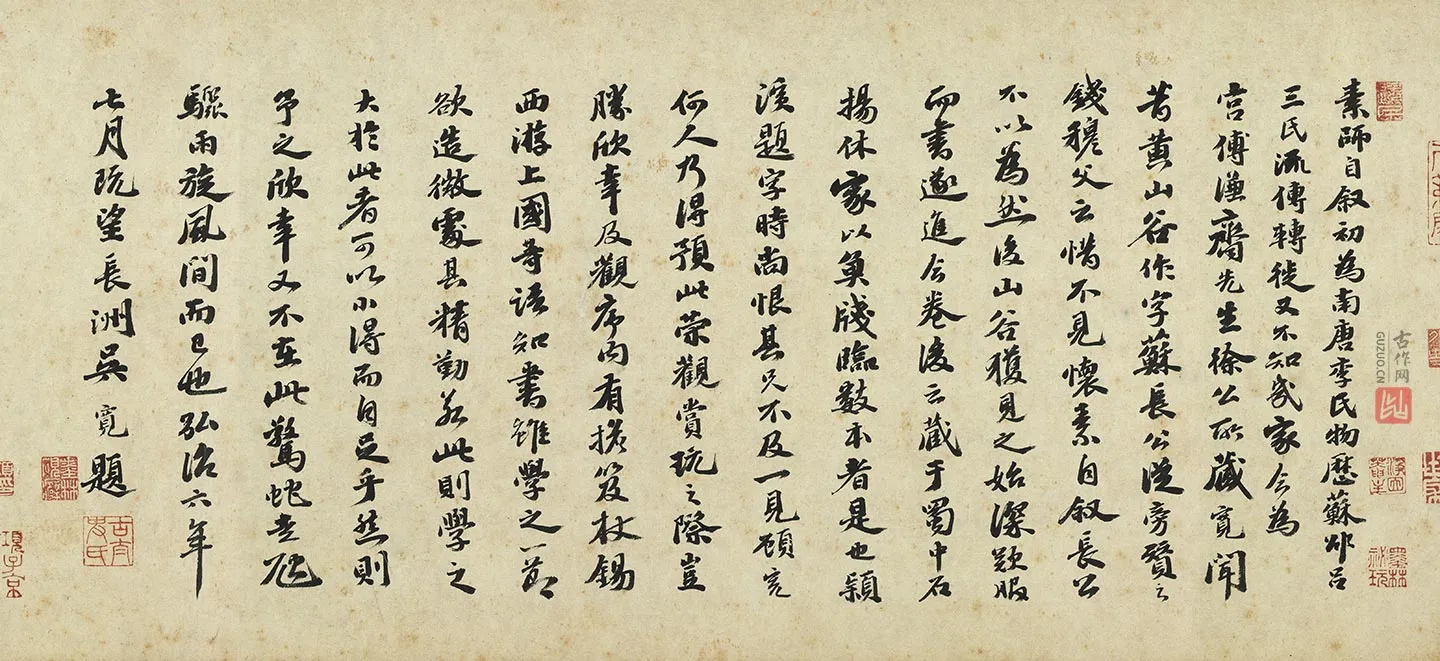 素師自叙初為南唐李氏物歷蘇邵呂
三氏流傳轉徙又不知幾家今為
宫傅謙齋先生徐公所藏寬聞
昔黄山谷作字蘇長公從旁賛之
錢穆父云惜不見懷素自叙長公
不以為然後山谷獲見之始深歎服
而書遂進今卷後云藏于蜀中石
揚休家以魚牋臨數本者是也頴
濱題字時尚恨其只不及一見顧寛
何人乃得預此榮觀賞玩之際豈
勝欣幸及觀序内有擔笈杖錫
西游上國等語知書雖學之一節
欲造微處其精勤若此則學之
大於此者可以小得而自足乎然則
予之欣幸又不在此驚蛇走虺
驟雨旋風間而已也弘治六年
七月既望長洲吳寛題
古作网
GUZUO.CN
項子京